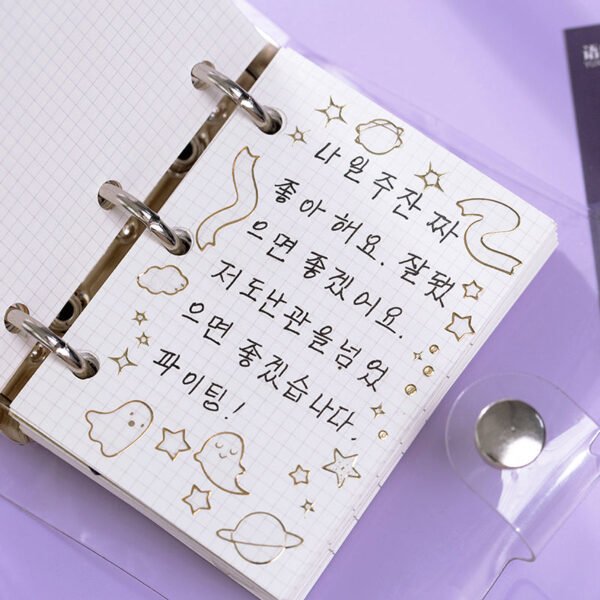 나 일 주잔 짜
좋아 해요. 잘됐
으면 좋겠어요.
저도난관을넘었
으면 좋겠습니다.
파이팅!